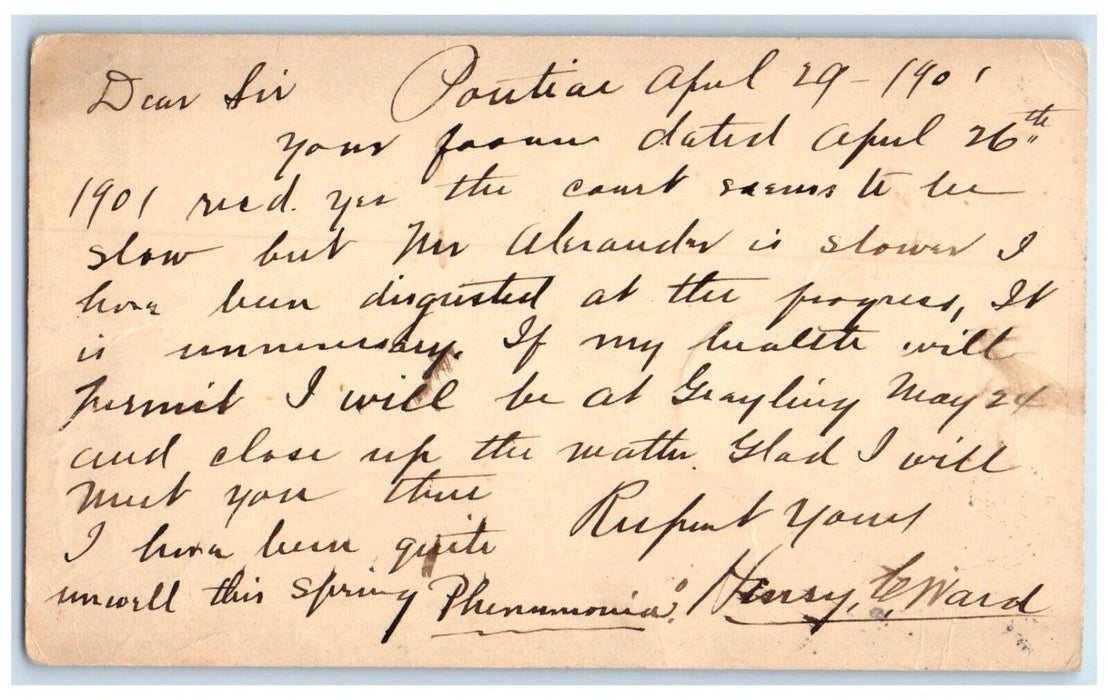 Dear Sir Pontiac April 29 - 1901
Your favor dated April 26th
1901 recd. Yes the court seems to be
slow but Mr Alexander is slower I
have been disgusted at the progress, It
is unnecessary. If my health will
permit I will be at Grayling May 24
and close up the matter. Glad I will
meet you there
Respect Yours
I have been quite
unwell this spring Phenumonia. Henry, C. Ward